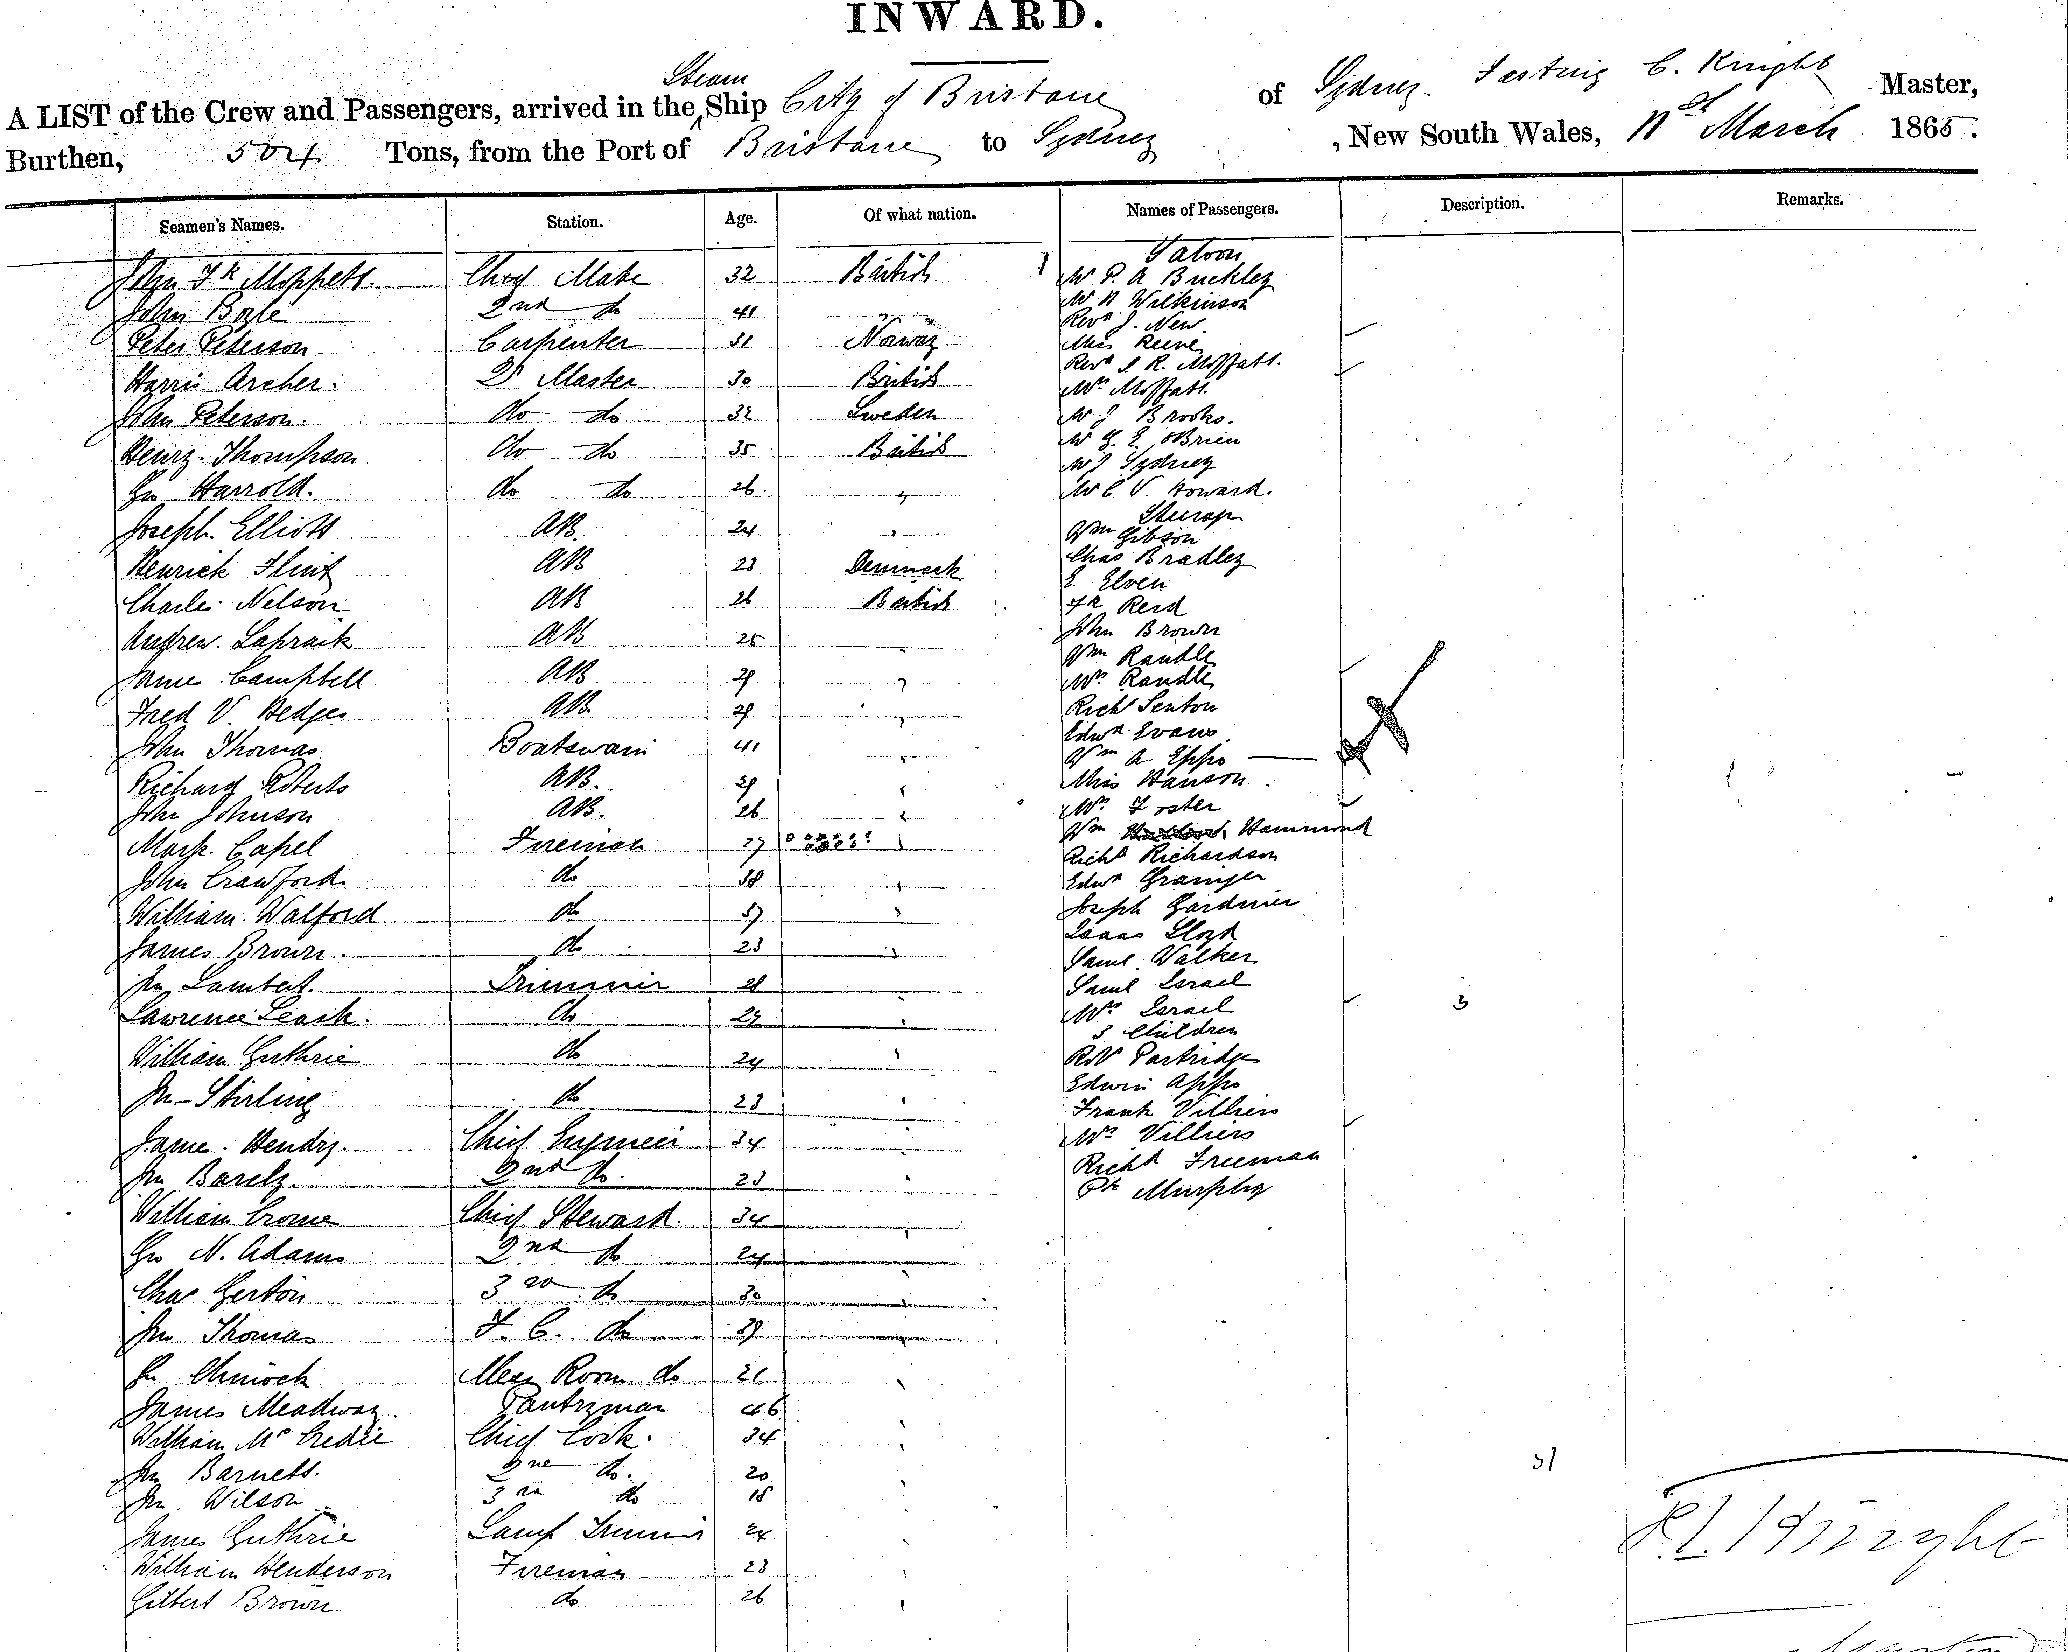 INWARD.
A LIST of the Crew and Passengers, arrived in the Steam Ship City of Brisbane of Sydney. C. Knight Master,
Burthen, 504 Tons, from the Port of Brisbane to Sydney, New South Wales, 11th March 1865.
Seamen's Names. Station. Age. Of what nation. Names of Passengers. Description. Remarks.
Saloon
John Fk Moppett. Chief Mate 32 British Mr P. A Buckley
Mr H Wilkinson
John Boyle 2nd do 41 " Revd J. New
Peter Peterson Carpenter 31 Norway Miss Reeve
Revd J. R. Moffatt.
Harris Archer. Qr Master 30 British Mrs Moffatt.
John Peterson. do do 32 Sweden Mr J Brooks.
Henry Thompson do do 35 British Mr G. E. O'Brien
Mr J Sydney
Geo Harrold. do do 26 " Mr C. V. Howard.
Steerage
Joseph Elliott AB. 24 " Wm Gibson
Henrick Flint AB 23 Denmark Chas Bradley
E Elven
Charles Nelson AB 26 British Fk Reid
Andrew Lapraik AB 25 " John Brown
Wm Randle
James Campbell AB 29 " Mrs Randle
Fred V. Hedges AB. 29 " Richd Senton
Edwd Evans
John Thomas Boatswain 41 " Wm A Eppo
Richard Roberts AB. 29 " Miss Hanson
John Johnson AB. 26 " Mrs Foster
Mark Capel Fireman 27 " Wm Hammond
Richd Richardson
John Crawford do 38 " Edwd Grainger
William Walford do 37 " Joseph Gardiner
Isaac Lloyd
James Brown. do 23 " Saml Walker
Jno Lambert. Trimmer 28 " Saml Israel
Lawrence Leask. do 29 " Mrs Israel 3
3 Children
William Guthrie do 24 " R W Partridge
Edwin Appo
Jno Stirling do 23 " Frank Villiers
James Hendry. Chief Engineer 34 " Mrs Villiers
Jno Barely. 2nd do. 23 " Richd Freeman
Pk Murphy
William Crome Chief Steward. 34 "
Geo N. Adams 2nd do 24 "
Chas Gerton 3rd do 30 "
Jno Thomas F. C. do 39 "
Mess Room do 21 "
James Meadway. Pantryman 46 "
William McCredie Chief Cook. 34 "
Jno Barnett. 2nd do. 20 " 31
Jno Wilson 3rd do 18 "
James Guthrie Lamp Trimmer 24 "
William Henderson Fireman 23 "
Gilbert Brown do 26 "
Knight